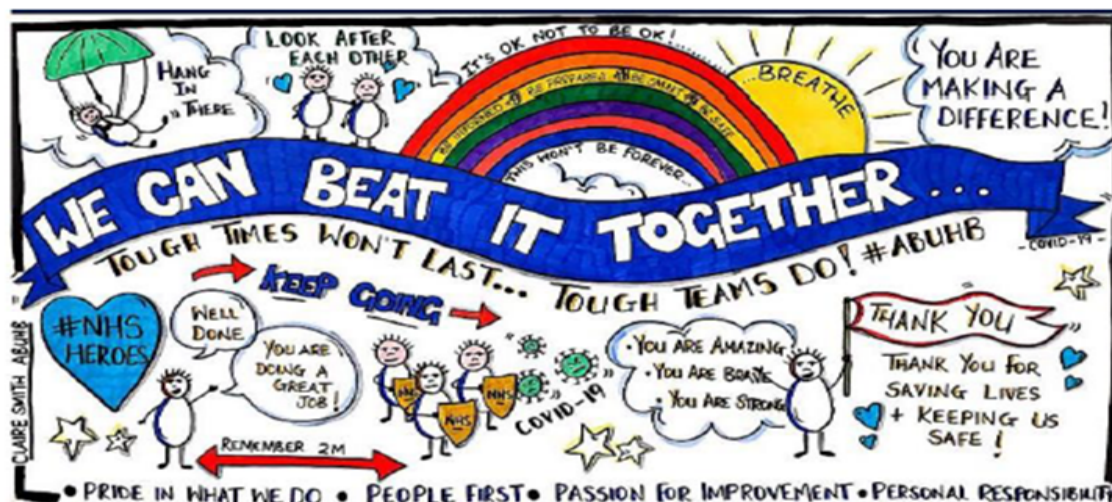 HANG
IN
THERE
LOOK AFTER
EACH OTHER
IT'S OK NOT TO BE OK!......
BE INFORMED BE PREPARED BE SMART BE SAFE
THIS WON'T BE FOREVER...
...BREATHE
YOU ARE
MAKING A
DIFFERENCE!
WE CAN BEAT IT TOGETHER...
TOUGH TIMES WON'T LAST... TOUGH TEAMS DO! #ABUHB
- COVID-19 -
KEEP GOING
#NHS
HEROES
WELL
DONE
YOU ARE
DOING A
GREAT
JOB!
REMEMBER 2M
NHS
NHS
COVID-19
• YOU ARE AMAZING
• YOU ARE BRAVE
• YOU ARE STRONG
THANK YOU
THANK YOU FOR
SAVING LIVES
+ KEEPING US
SAFE!
CLAIRE SMITH ABUHB
• PRIDE IN WHAT WE DO • PEOPLE FIRST • PASSION FOR IMPROVEMENT • PERSONAL RESPONSIBILITY